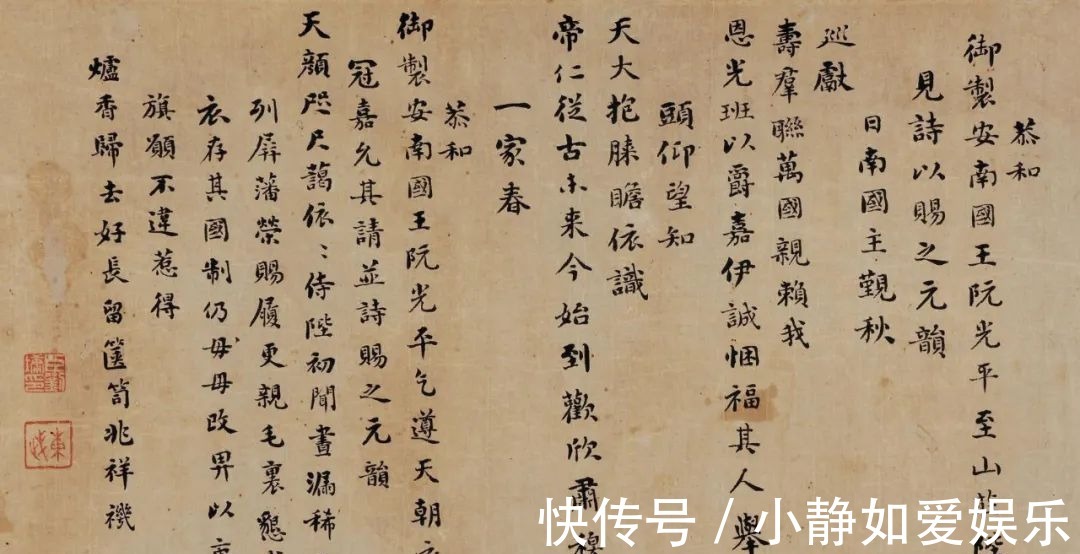 恭和
御製安南國王阮光平至山莊陛
見詩以賜之元韻
日南國主覲秋
巡獻
壽羣聯萬國親賴我
恩光班以爵嘉伊誠悃福其人舉
頭仰望知
天大抱膝瞻依識
帝仁從古未来今始到歡欣肅穆
一家春
恭和
御製安南國王阮光平乞遵天朝衣
冠嘉允其請並詩賜之元韻
天顏咫尺藹依〻侍陛初聞晝漏稀
列屏藩榮賜履更親毛裏懇
衣存其國制仍毋毋改畀以
旗願不違惹得
爐香歸去好長留篋笥兆祥禨
快传号/小静如爱娱乐